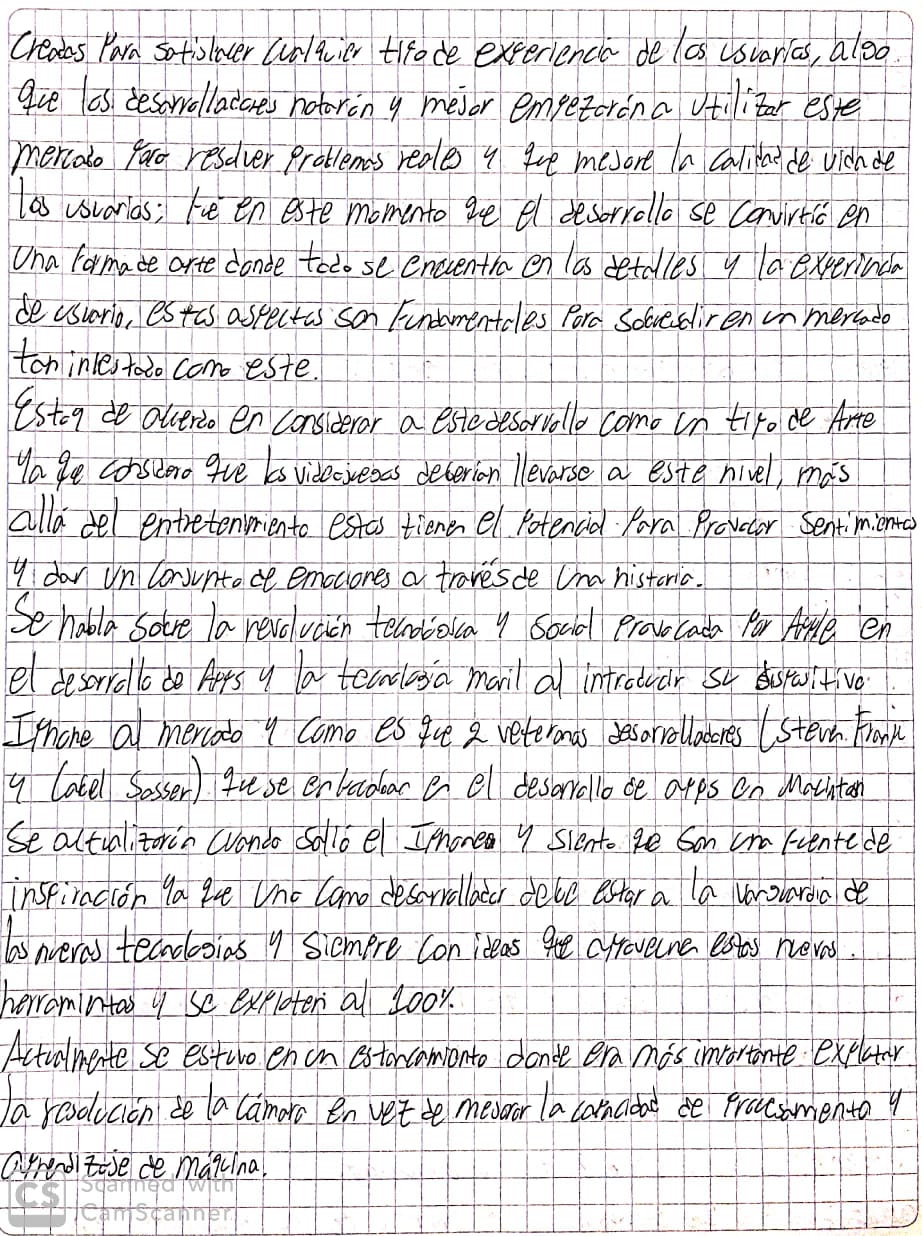 Creadas Para satisfacer cualquier tipo de experiencia de los usuarios, algo
que los desarrolladores notarón y mejor empezarón a utilizar este
mercado Para resolver Problemas reales y que mejore la calidad de vida de
los usuarios; fue en este momento que el desarrollo se convirtió en
una forma de arte donde todo se encuentra en los detalles y la experincia
de usuario, estos aspectos son Fundamentales Para sobresalir en un mercado
tan infestado como este.
Estoy de acuerdo en considerar a este desarrollo como un tipo de Arte
Ya que considero que los videojuegos deberían llevarse a este nivel, más
allá del entretenimiento estos tienen el Potencial Para Provocar sentimientos
y dar un conjunto de emociones a través de una historia.
Se habla sobre la revolución tecnológica y social Provocada Por Apple en
el desarrollo de Apps y la tecnología movil al introducir su dispositivo
IPhone al mercado y como es que 2 veteranos desarrolladores (Steven Frank
y Cabel Sasser) que se en el desarrollo de apps en
se actualizarón cuando salió el IPhone y siento que son una fuente de
inspiración Ya que uno como desarrollador debe estar a la vanguardia de
las nuevas tecnologias y siempre con ideas que estas nuevas
herramintas y se exploten al 100%.
Actualmente se estuvo en un estancamiento donde era más importante explotar
la resolución de la cámara en vez de mejorar la capacidad de Procesamento y
aprendizaje de máquina.
CS Scanned with
CamScanner